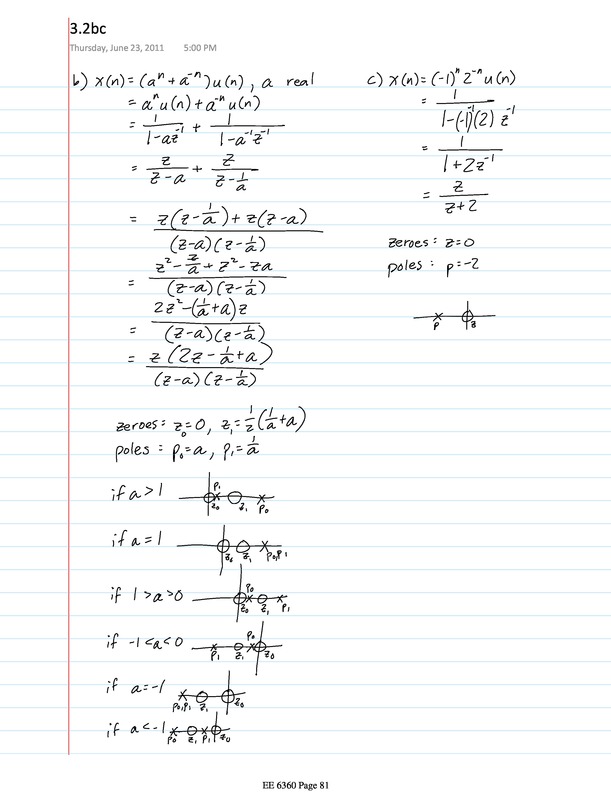 3.2bc
Thursday, June 23, 2011 5:00 PM
b) x(n) = (aⁿ + a⁻ⁿ)u(n), a real
= aⁿu(n) + a⁻ⁿu(n)
= 1/(1-az⁻¹) + 1/(1-a⁻¹z⁻¹)
= z/(z-a) + z/(z-1/a)
= (z(z-1/a) + z(z-a))/((z-a)(z-1/a))
= (z² - z/a + z² - za)/((z-a)(z-1/a))
= (2z² - (1/a + a)z)/((z-a)(z-1/a))
= z(2z - 1/a + a)/((z-a)(z-1/a))
zeroes: z₀=0, z₁=1/2(1/a + a)
poles: p₀=a, p₁=1/a
if a > 1 p₁ z₀ z₁ p₀
if a = 1 z₀ z₁ p₀,p₁
if 1 > a > 0 p₀ z₀ z₁ p₁
if -1 < a < 0 p₁ z₁ p₀ z₀
if a = -1 p₀,p₁ z₁ z₀
if a < -1 p₀ z₁ p₁ z₀
c) x(n) = (-1)ⁿ 2⁻ⁿ u(n)
= 1/(1-(-1)⁻¹(2) z⁻¹)
= 1/(1+2z⁻¹)
= z/(z+2)
zeroes: z=0
poles: p=-2
p z
EE 6360 Page 81